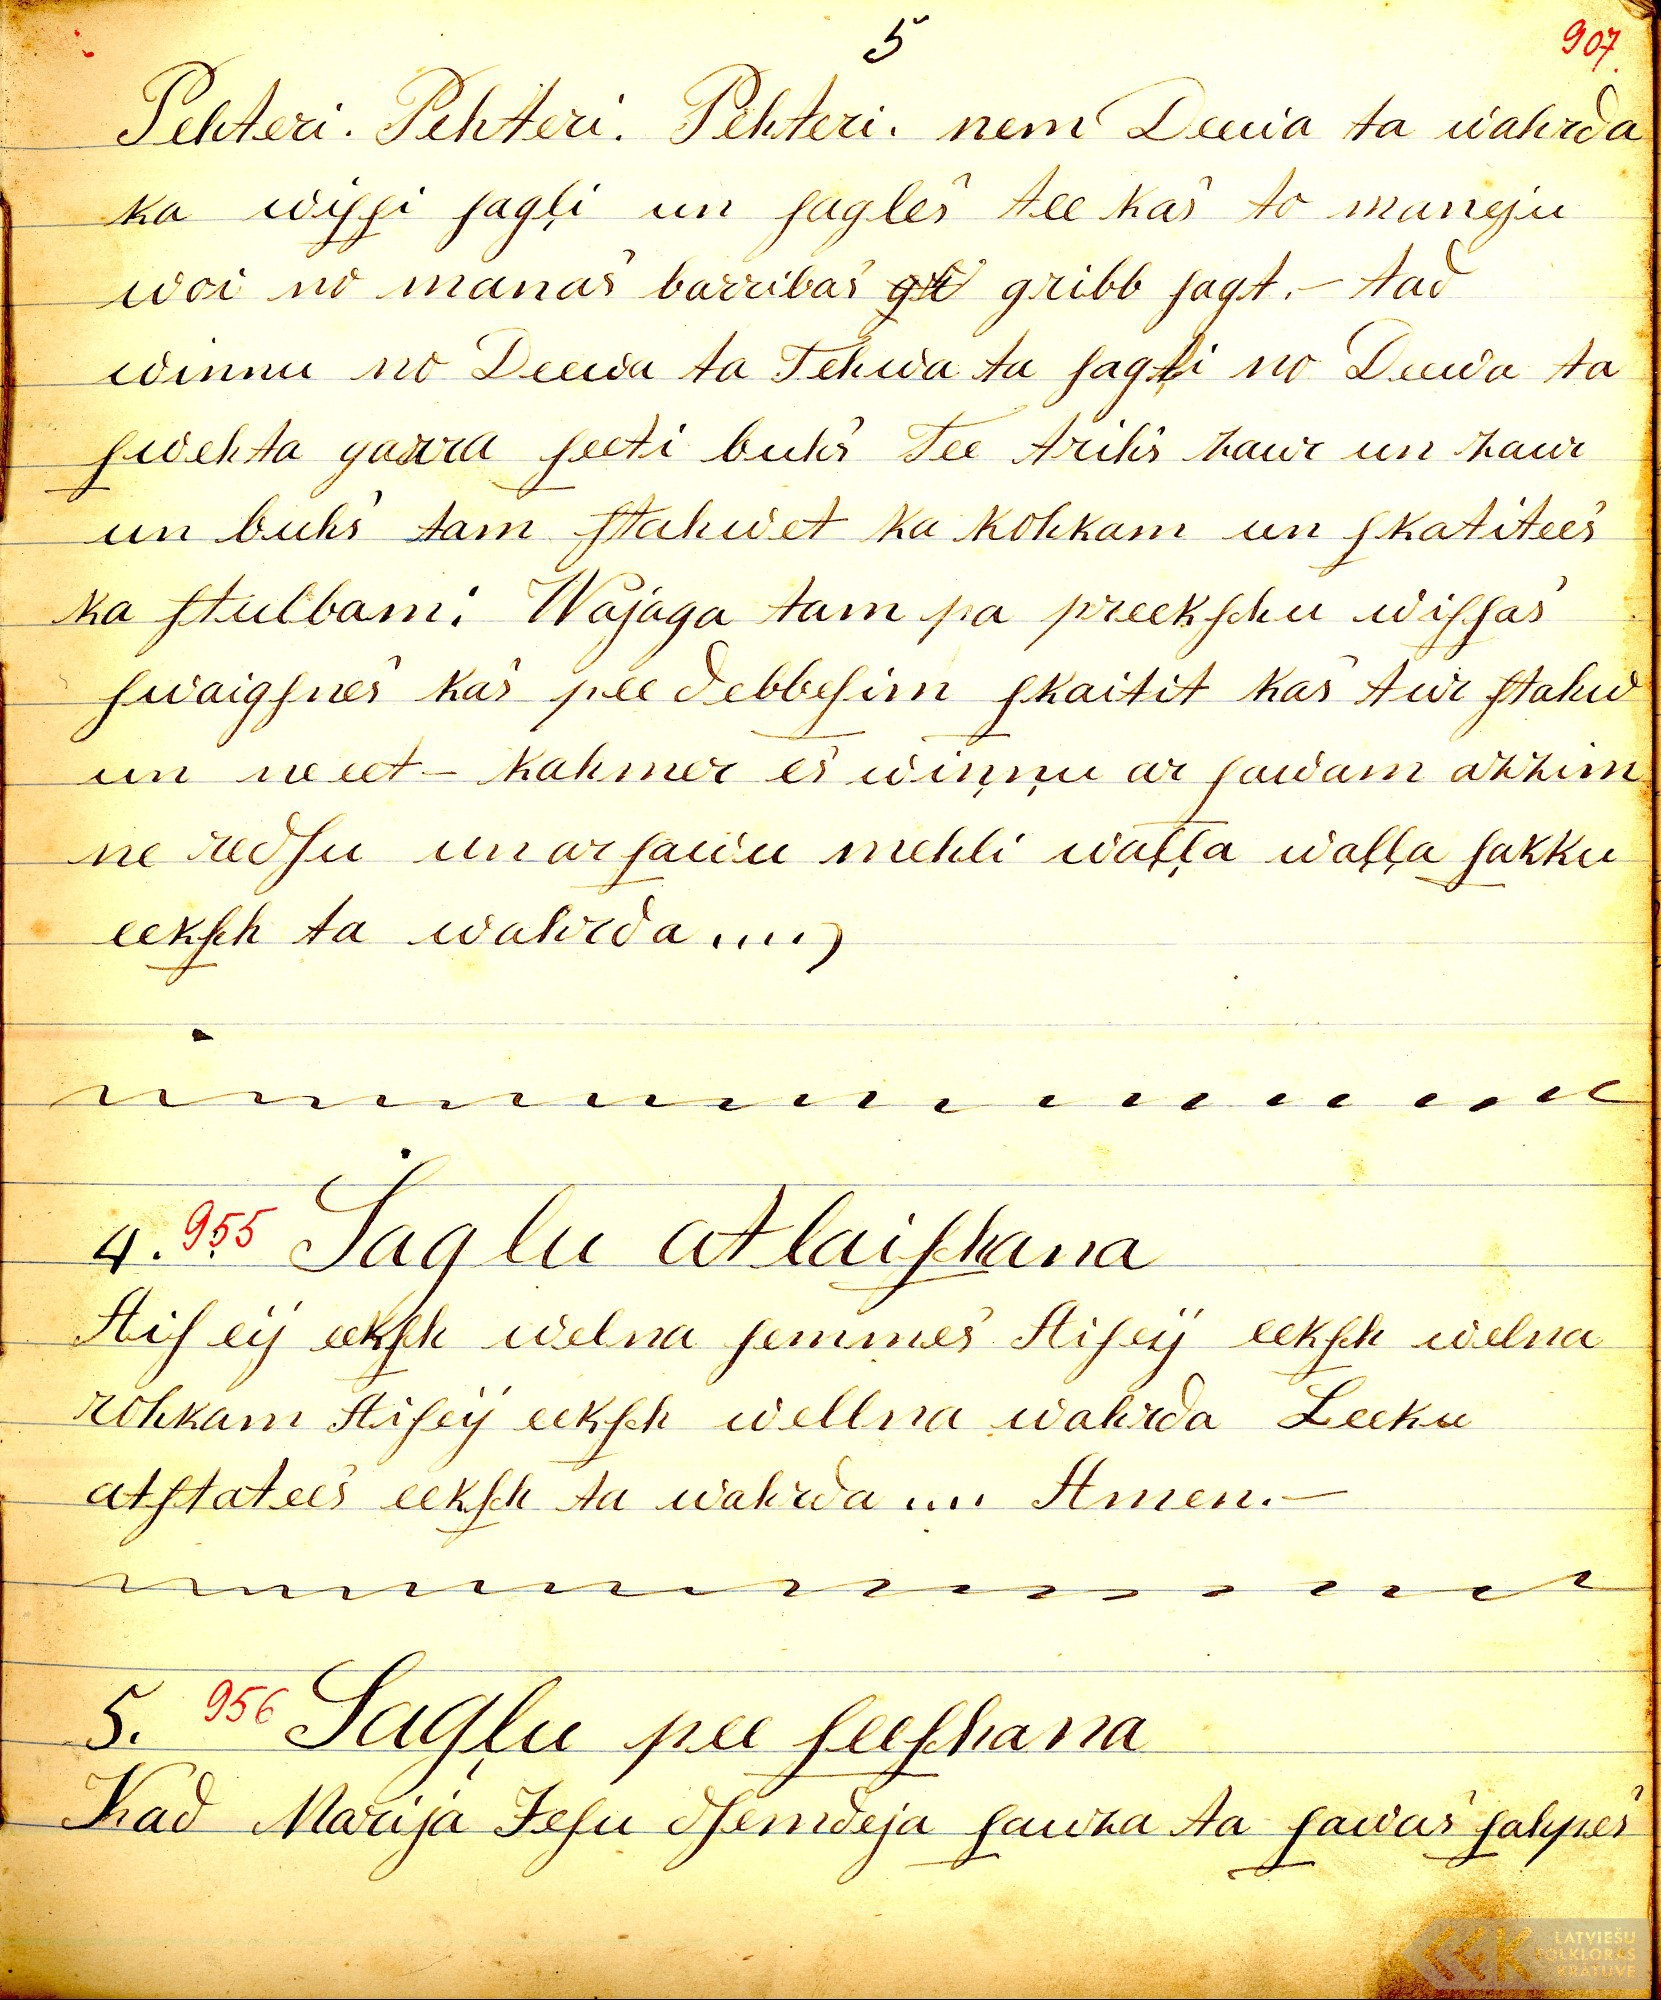 5
907.
Pehteri. Pehteri. Pehteri. nem Deewa ta wahrda
ka wiſſi ſagļi un ſagles tee kas to maneju
woi no manas barribas gribb ſagt.- tad
winnu no Deewa ta Tehwa ta ſagļi no Deewa ta
ſwehta garra ſeeti buhs Tee trihs zaur un zaur
un buhs tam ſtahwet ka kohkam un ſkatitees
ka ſtulbam: Wajaga tam pa preekſchu wiſſas
ſwaigſnes kas pee debbeſim ſkaitit kas tur ſtahw
un ne eet - kahmer es wiņņu ar ſawam azzim
ne redſu un ar ſawu mehli waļļa waļļa ſakku
eekſch ta wahrda ....,
4. 955 Saglu atlaiſchana
Aiſeij eekſch welna ſemmes Aiſeij eekſch welna
rohkam Aiſeij eekſch wellna wahrda Leeku
atſtatees eekſch ta wahrda .... Amen.-
5. 956 Sagļu pee ſeeſchana
Kad Marija Jeſu dſemdeja ſauza ta ſawas ſahpes
LATVIEŠU
FOLKLORAS
KRĀTUVE